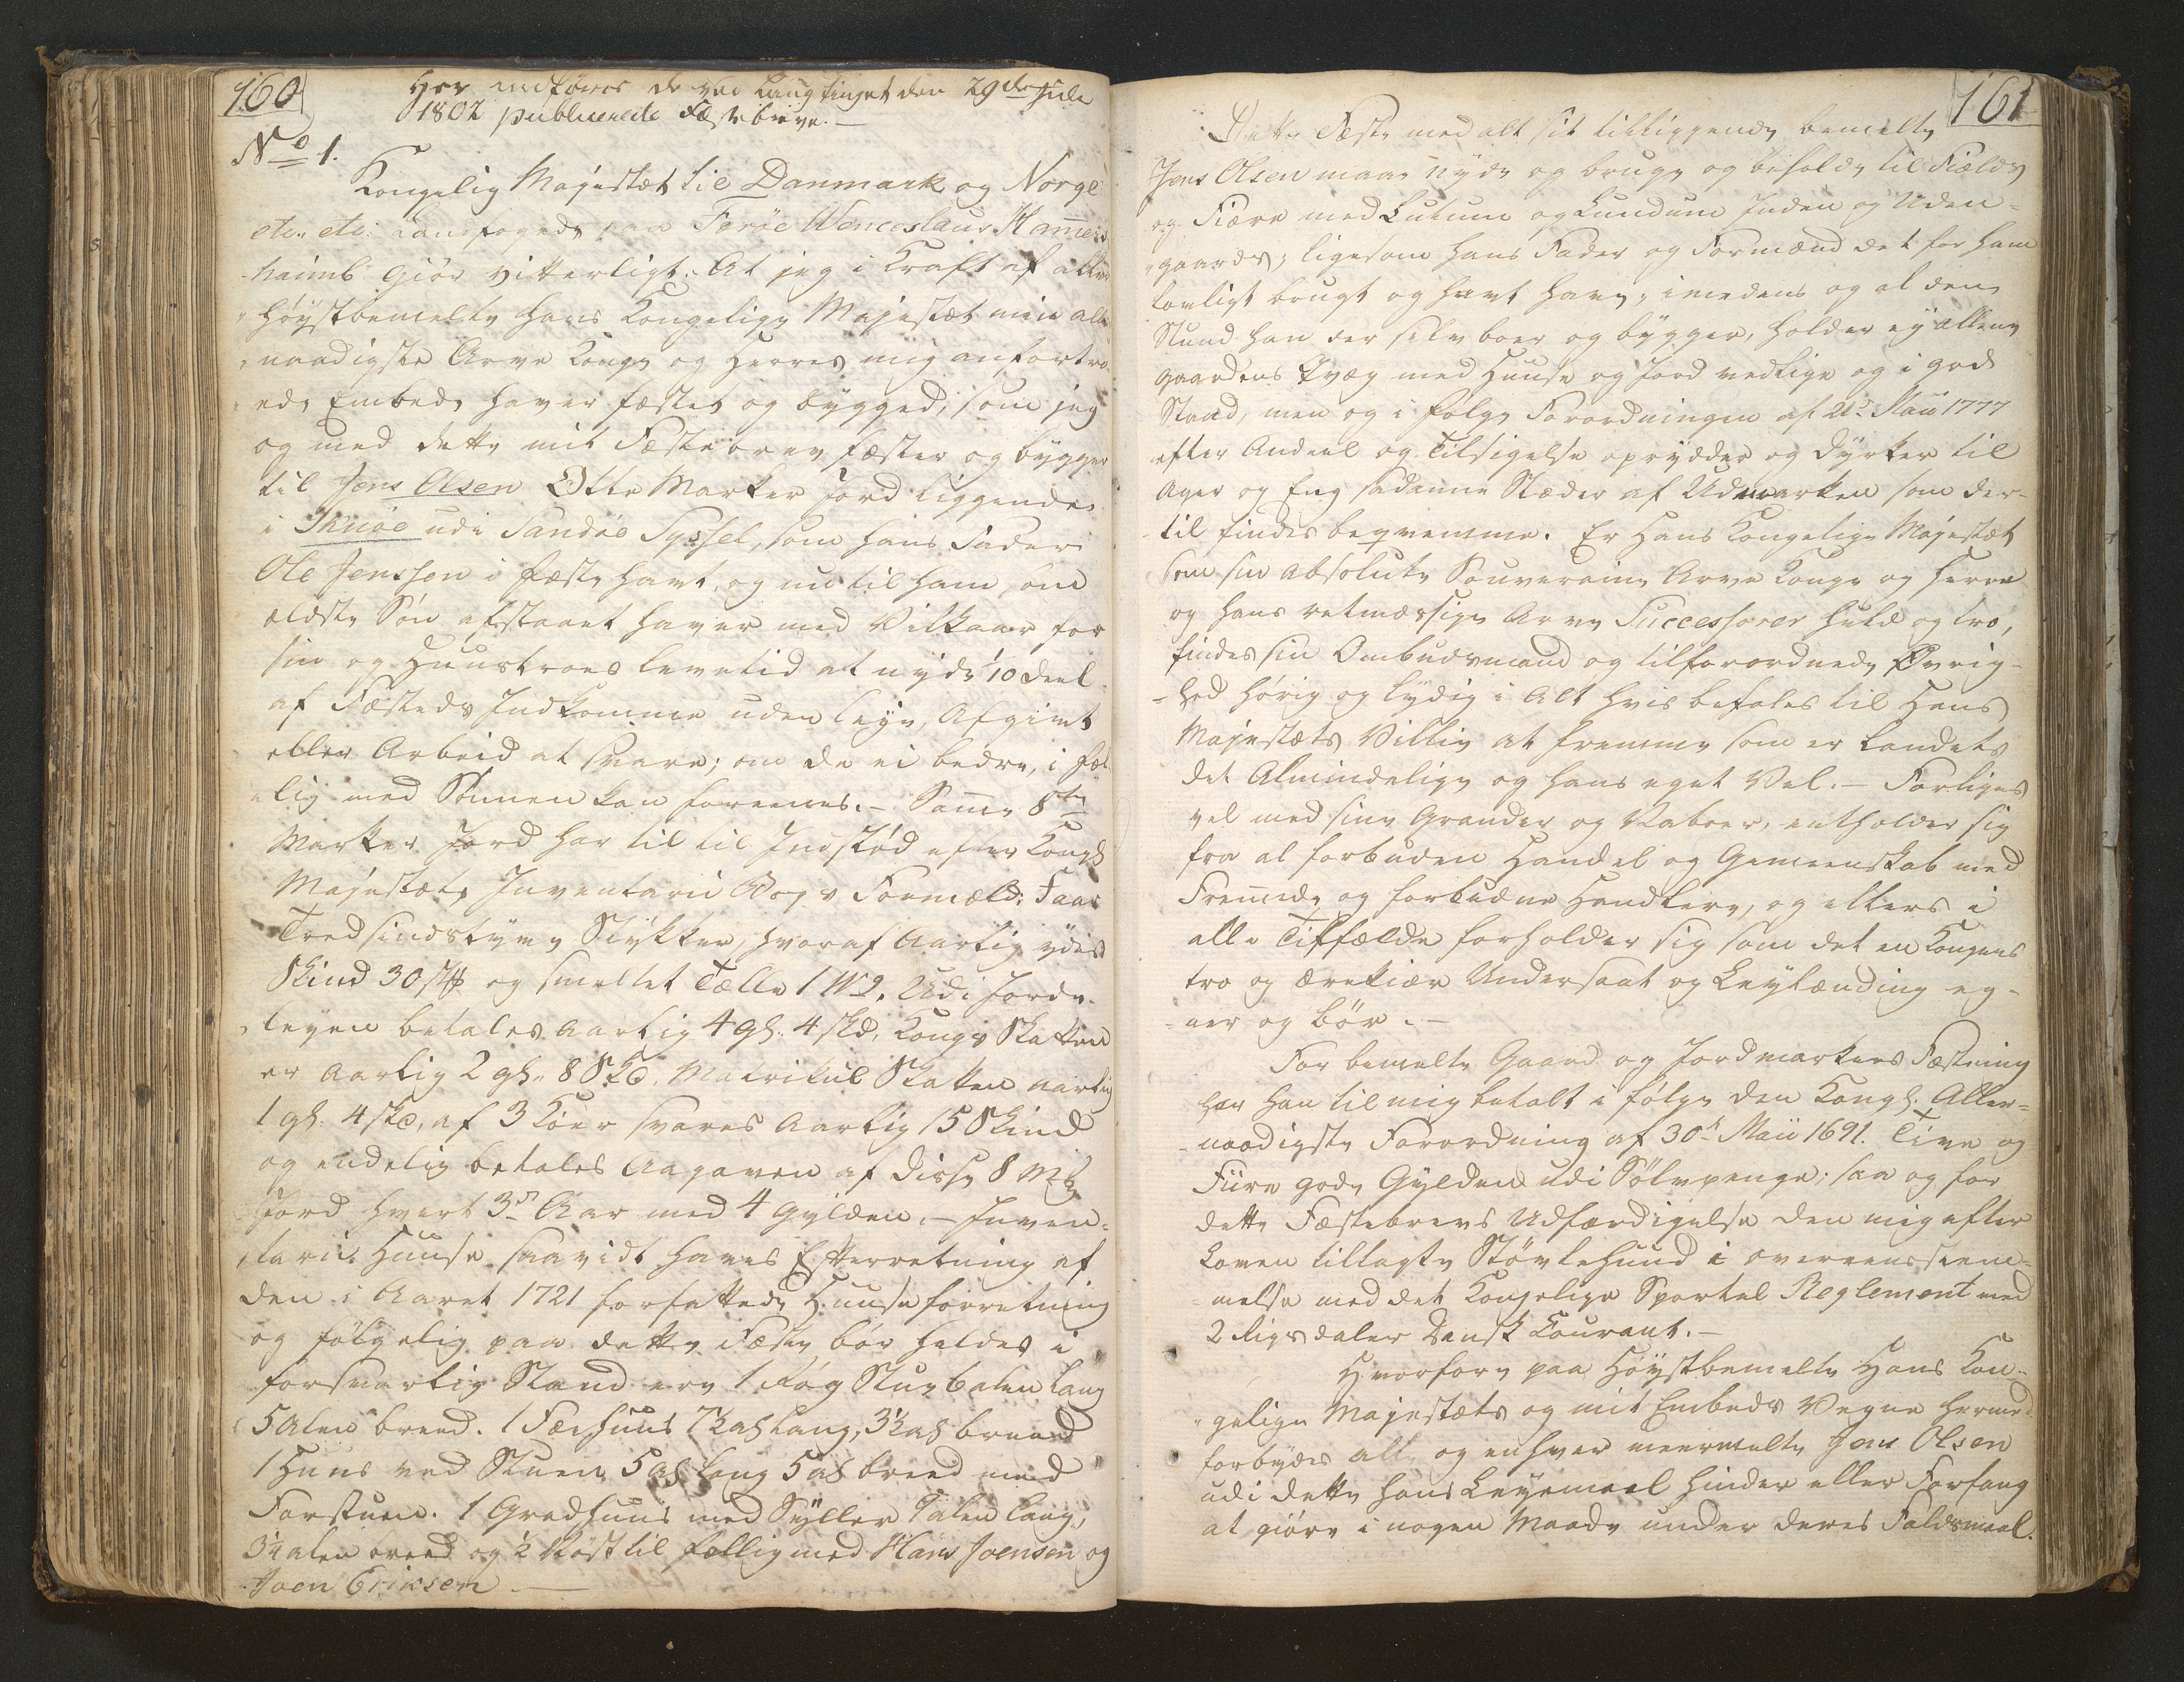 160
Her indføres de ved Laugtinget den 29de Julii
1802 publicerede Fæstebreve.—
No 1.
Kongelig Majestæt til Danmark og Norge
etc. etc: Landfogede paa Ferøe Wenceslaus Hames-
haimb giør vitterligt: At jeg i Kraft af aller
høystbemelte Hans Kongelige Majestæt min aller-
naadigste Arve Konge og Herres mig anfortro-
ede Embede haver fæstet og bygged, som jeg
og med dette mit Fæstebrev fæster og bygger
til Jens Olsen Otte Marker Jord liggende
i Skuøe udi Sandøe Syssel, som hans Fader
Ole Jenssen i Fæste havt, og nu til ham som
ældste Søn afstaaet haver med Vilkaar for
sin og Huustroes Levetid at nyde 10 Deel
af Fæstets Indkomme uden Leje, Afgivt
eller Arbeid at svare; om de ei bedre, i fæl-
lig med Sønnen kan foreenes.— Same 8te
Marker Jord har til til Indstød efter Kongl
Majestæts Inventarii Bogs Formeld: Faar
Tredsindstyve Stykker, hvoraf Aarlig ydes
Skind 30 st og smeltet Tælle 1 Wg. Udi Jorde-
leyen betales Aarlig 4 gl: 4 skd, Kongs Skatten
er Aarlig 2 gl: 8 Skd. Matrikul Skatten aarlig
1 gl: 4 skd, af 3 Kiøer svares Aarlig 15 Skind
og endelig betales Aagaven af disse 8 Mk
Jord hvert 3die Aar med 4 Gylden.— Inven-
tarii Huuse saavidt haves Efterretning af
den i Aaret 1721 forfattede Huuseforretning
og følgelig paa dette Fæste bør holdes i
forsvarlig Stand ere 1 Røg Stue 6 alen lang
5 Alen breed. 1 Færhuus 7½ al lang, 3½ al breed
1 Huus ved Stuen 5 al lang 5 al breed med
Forstuen. 1 Gradhuus med Syller 9 alen lang,
3½ alen breed og ½ Nøst til fællig med Hans Joensen og
Joen Eriksen.—
161
Dette Fæste med alt sit tilliggende bemelte
Jens Olsen maae nyde og bruge og beholde til Fields
og Fiære med Lutum og Lundum Inden og Uden-
gaards; ligesom hans Fader og Formænd det for ham
lovligt brugt og havt have, imedens og al den
Stund han der selv boer og bygger, holder ey allene
Gaardens Qvæg med Huuse og Jord vedlige og i god
Stand, men og i følge Forordningen af 21de Maii 1777
efter Andeel og Tilsigelse oprydder og dyrker til
Ager og Eng sadanne Stæder af Udmarken som der-
til findes beqvemme. Er Hans Kongelige Majestæt
som sin absolute Souveraine Arve Konge og Herre
og Hans retmæssige Arve Successorer huld og tro,
findes sin Ombudsmand og tilforordnede Øvrig-
hed hørig og lydig i Alt hvis befales til Hans
Majestæts Villie at fremme som er Landets
det Almindelige og hans eget Vel.— Forliges
vel med sine Grander og Naboer, entholder sig
fra al forbuden Handel og Gemeenskab med
Fremde og forbudne Handlere, og ellers i
alle Tilfælde forholder sig som det en Kongens
tro og ærekiær Undersaat og Leylænding eg-
ner og bør.—
For bemelte Gaard og Jordmarkers Fæstning
har han til mig betalt i følge den Kongl. Aller-
naadigste Forordning af 30te Maii 1691. Tive og
Fiire gode Gylden udi Sølvpenge; saa og for
dette Fæstebrevs Udfærdigelse den mig efter
Loven tillagte Støvlehuud i overeensstem-
melse med det Kongelige Sportel Reglement med
2 Rigsdaler Dansk Courant.—
Hvorfore paa Høystbemelte Hans Kon-
gelige Majestæts og mit Embeds Vegne hermed
forbydes alle og enhver meermelte Jens Olsen
udi dette hans Leyemaal hinder eller Forfang
at giøre i nogen Maade under deres Faldsmaal.